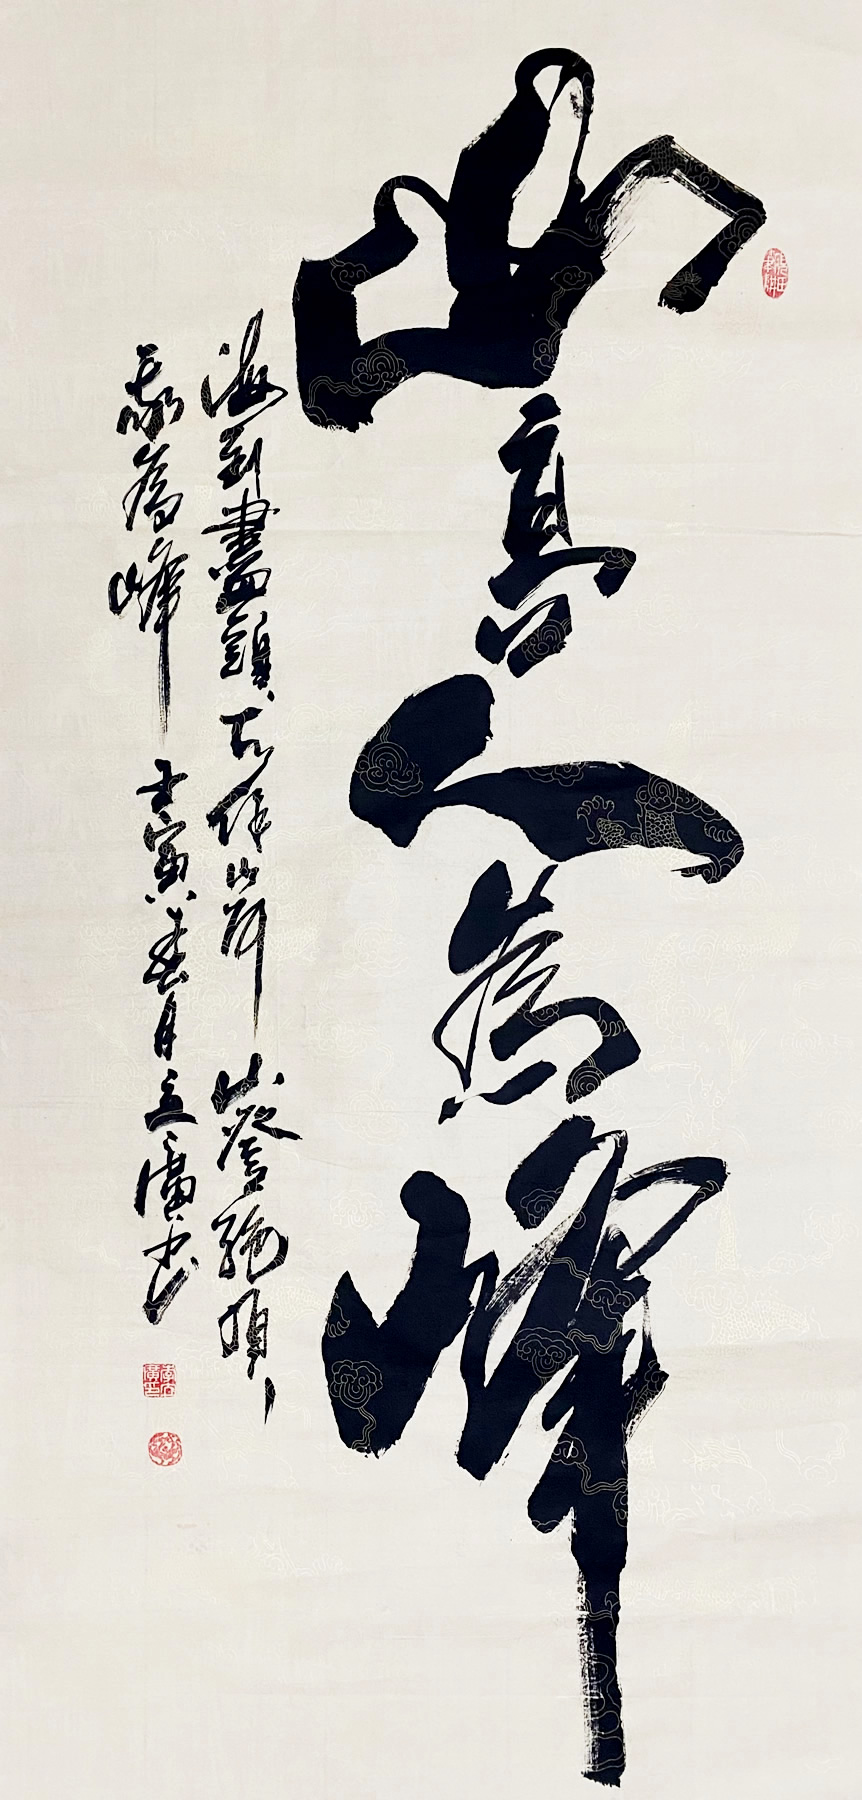 山高人為峰
海到盡頭天作岸 山登絕頂
我為峰 壬寅春月立廣書